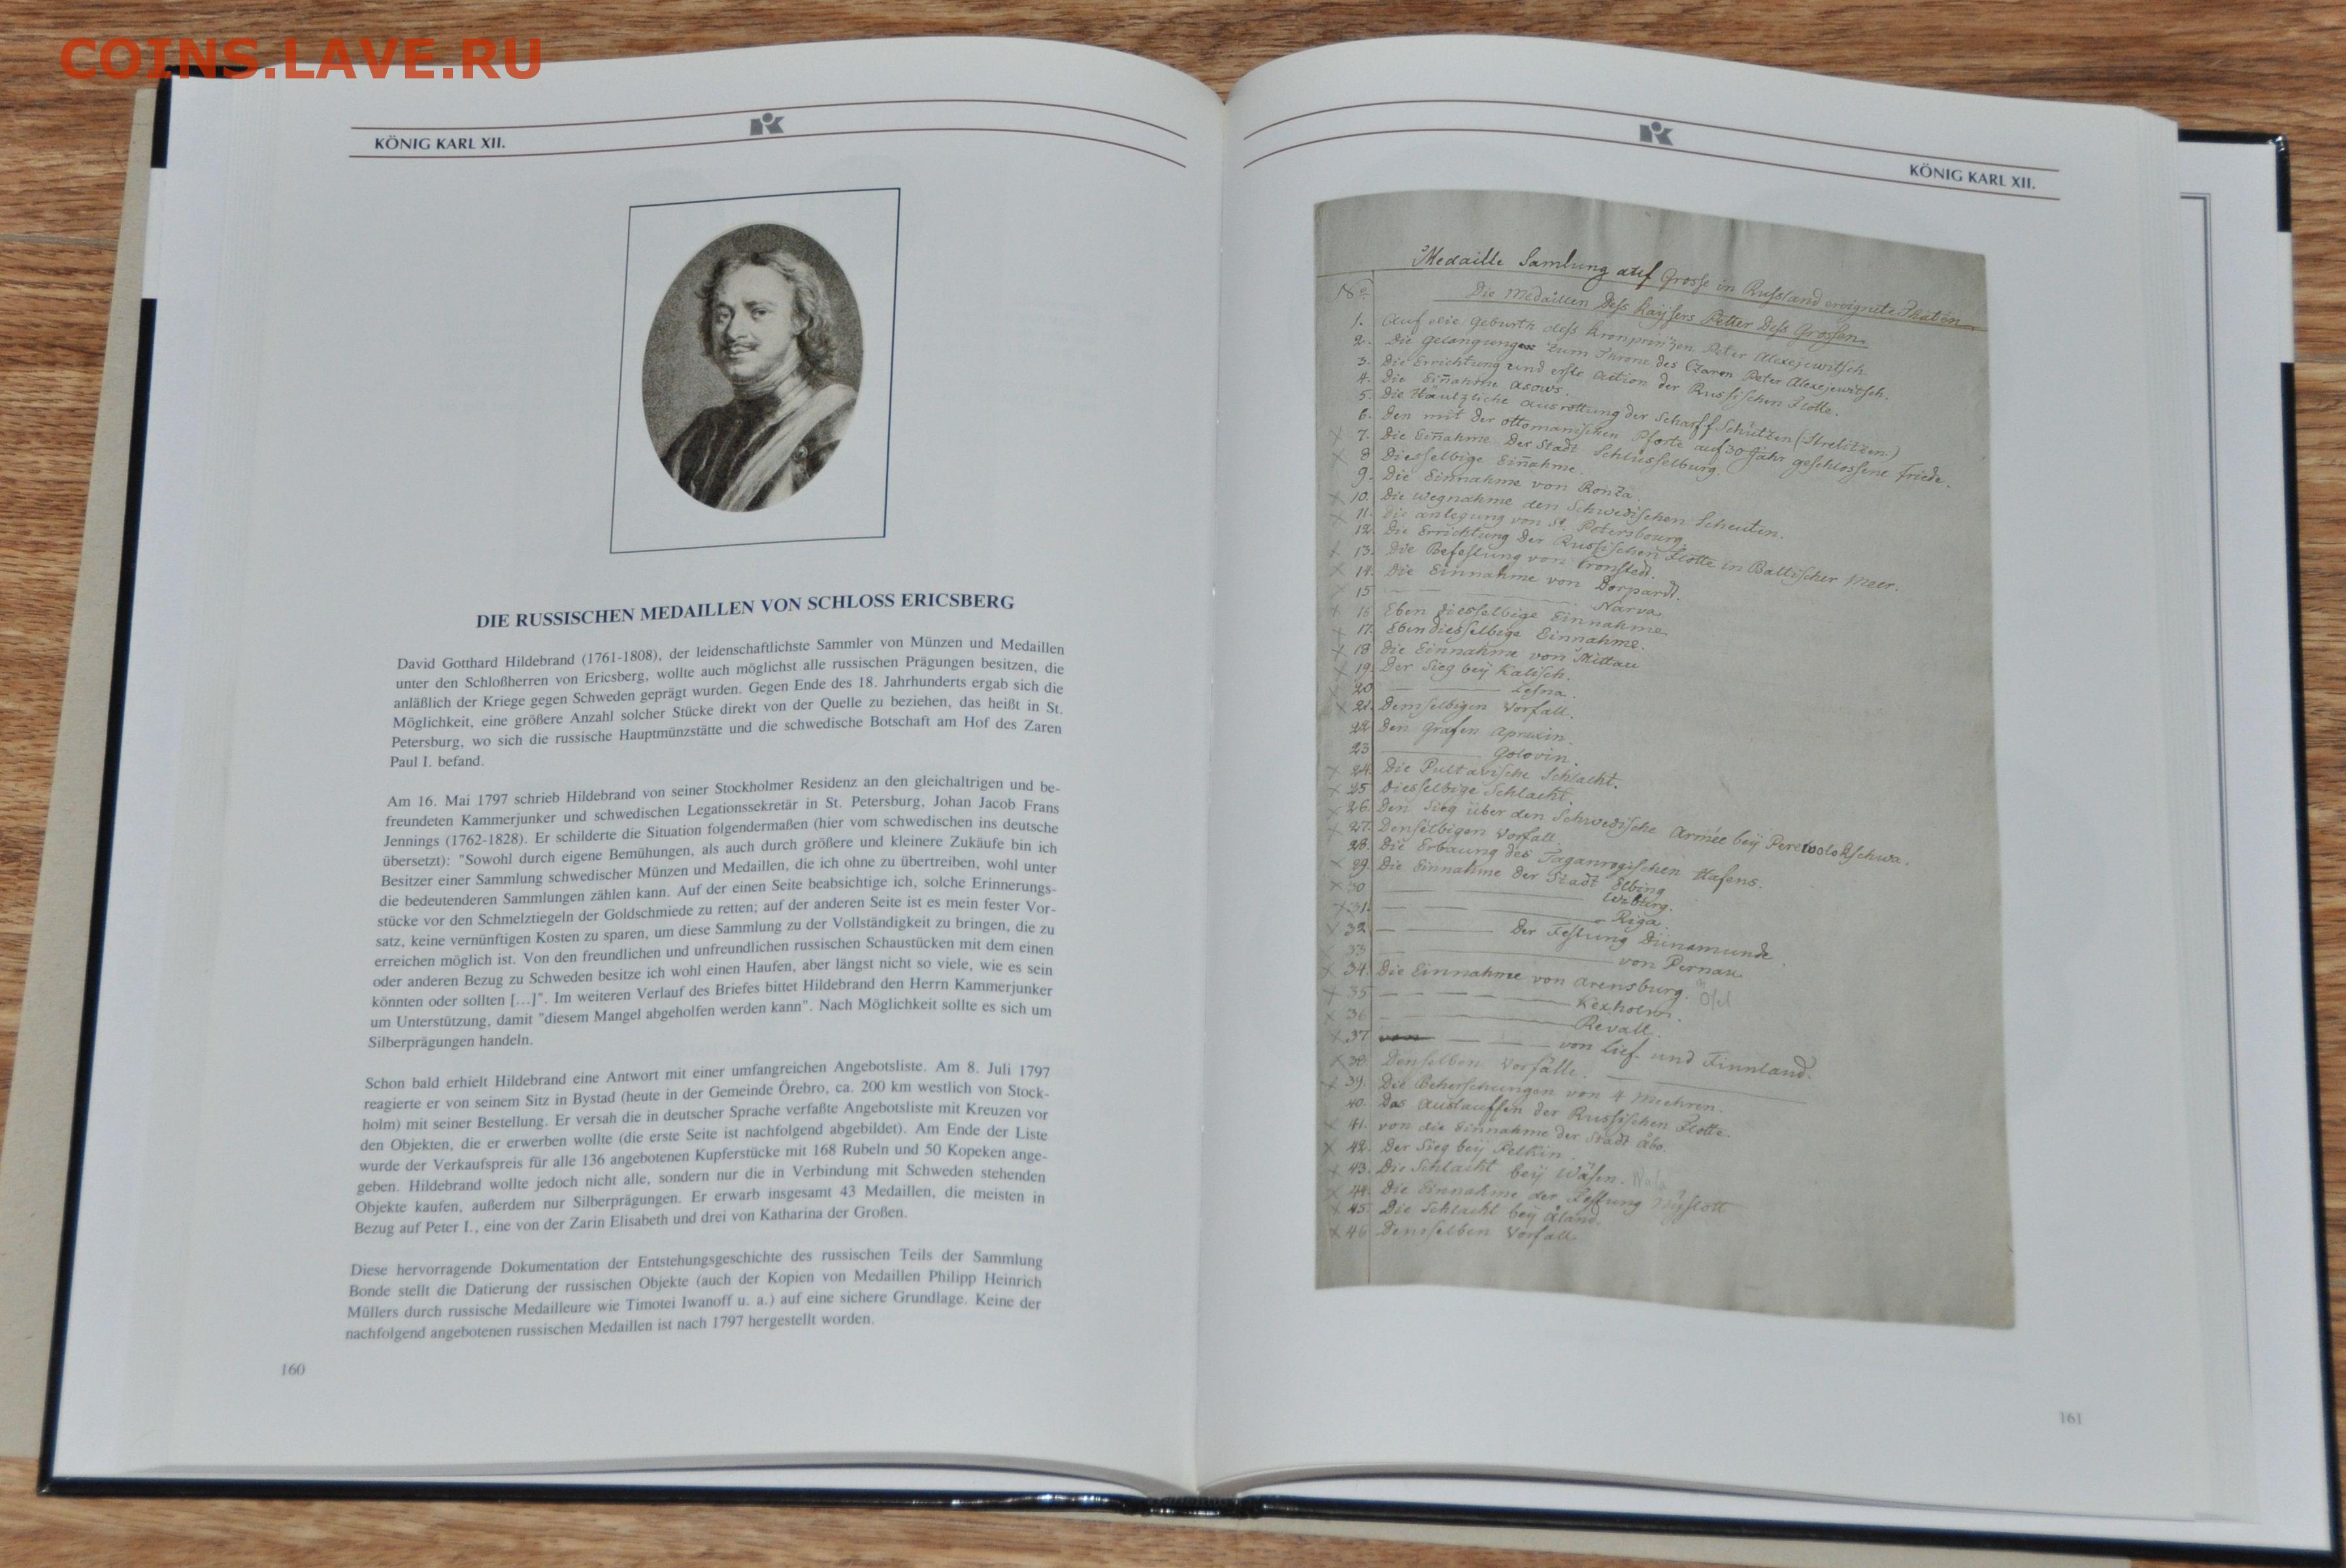 COINS.LAVE.RU
KÖNIG KARL XII.
DIE RUSSISCHEN MEDAILLEN VON SCHLOSS ERICSBERG
David Gotthard Hildebrand (1761-1808), der leidenschaftlichste Sammler von Münzen und Medaillen
unter den Schloßherren von Ericsberg, wollte auch möglichst alle russischen Prägungen besitzen, die
anläßlich der Kriege gegen Schweden geprägt wurden. Gegen Ende des 18. Jahrhunderts ergab sich die
Möglichkeit, eine größere Anzahl solcher Stücke direkt von der Quelle zu beziehen, das heißt in St.
Petersburg, wo sich die russische Hauptmünzstätte und die schwedische Botschaft am Hof des Zaren
Paul I. befand.
Am 16. Mai 1797 schrieb Hildebrand von seiner Stockholmer Residenz an den gleichaltrigen und be-
freundeten Kammerjunker und schwedischen Legationssekretär in St. Petersburg, Johan Jacob Frans
Jennings (1762-1828). Er schilderte die Situation folgendermaßen (hier vom schwedischen ins deutsche
übersetzt): "Sowohl durch eigene Bemühungen, als auch durch größere und kleinere Zukäufe bin ich
Besitzer einer Sammlung schwedischer Münzen und Medaillen, die ich ohne zu übertreiben, wohl unter
die bedeutenderen Sammlungen zählen kann. Auf der einen Seite beabsichtige ich, solche Erinnerungs-
stücke vor den Schmelztiegeln der Goldschmiede zu retten; auf der anderen Seite ist es mein fester Vor-
satz, keine vernünftigen Kosten zu sparen, um diese Sammlung zu der Vollständigkeit zu bringen, die zu
erreichen möglich ist. Von den freundlichen und unfreundlichen russischen Schaustücken mit dem einen
oder anderen Bezug zu Schweden besitze ich wohl einen Haufen, aber längst nicht so viele, wie es sein
könnten oder sollten [...]". Im weiteren Verlauf des Briefes bittet Hildebrand den Herrn Kammerjunker
um Unterstützung, damit "diesem Mangel abgeholfen werden kann". Nach Möglichkeit sollte es sich um
Silberprägungen handeln.
Schon bald erhielt Hildebrand eine Antwort mit einer umfangreichen Angebotsliste. Am 8. Juli 1797
reagierte er von seinem Sitz in Bystad (heute in der Gemeinde Örebro, ca. 200 km westlich von Stock-
holm) mit seiner Bestellung. Er versah die in deutscher Sprache verfaßte Angebotsliste mit Kreuzen vor
den Objekten, die er erwerben wollte (die erste Seite ist nachfolgend abgebildet). Am Ende der Liste
wurde der Verkaufspreis für alle 136 angebotenen Kupferstücke mit 168 Rubeln und 50 Kopeken ange-
geben. Hildebrand wollte jedoch nicht alle, sondern nur die in Verbindung mit Schweden stehenden
Objekte kaufen, außerdem nur Silberprägungen. Er erwarb insgesamt 43 Medaillen, die meisten in
Bezug auf Peter I., eine von der Zarin Elisabeth und drei von Katharina der Großen.
Diese hervorragende Dokumentation der Entstehungsgeschichte des russischen Teils der Sammlung
Bonde stellt die Datierung der russischen Objekte (auch der Kopien von Medaillen Philipp Heinrich
Müllers durch russische Medailleure wie Timotei Iwanoff u. a.) auf eine sichere Grundlage. Keine der
nachfolgend angebotenen russischen Medaillen ist nach 1797 hergestellt worden.
160
KÖNIG KARL XII.
Medaille Samlung auf Grosse in Russland ereignete Thaten
No. Die Medaillen Dess Kaysers Petter Dess Grossen.
1. Auf die geburth dess Kronprinzen Peter Alexejewitsch.
2. Die gelangung zum Throne des Czaren Peter Alexejewitsch.
3. Die Errichtung und erste Action der Russischen Flotte.
4. Die Einahme Asows.
5. Die ausrottung der Scharff Schützen (Strelitzen.)
6. Den mit der ottomanischen Pforte auf 30 Jahr geschlossene Friede.
7. Die Einahme Der Stadt Schlüsselburg.
8 Diesselbige Einahme.
9. Die Einnahme von
10. Die wegnahme den Schwedischen
11. Die anlegung von St. Petersbourg.
12. Die Errichtung Der Russischen Flotte in Baltischer Meer.
13. Die Befestung von Cronstedt.
14. Die Einnahme von Dorpardt.
15 Narva.
16 Eben diesselbige Einnahme
17. Eben diesselbige Einnahme.
18 Die Einnahme von Mittau
19. Der Sieg bey Kalisch.
20 Lesna.
21. Demselbigen Vorfall.
22 Den Grafen Apraxin.
23 Golovin.
24. Die Pultavische Schlacht.
25 Diesselbige Schlacht.
26. Den Sieg über den Schwedische Armée bey Perewolotschna.
27. Denselbigen Vorfall.
28. Die Erbaung des Taganrogischen Hafens.
29. Die Einnahme der Stadt Elbing
30 Wiburg.
31. Riga
32 Der Festung Dünamunde
33 von Pernau
34. Die Einnahme von Arensburg. Ösel
35 Kexholm.
36 Revall
37 von Lief. und Finnland.
38. Denselben Vorfälle.
39. Die Beherschungen von 4 Miehren.
40. Das Auslauffen der Russischen Flotte.
41. von die Einnahme der Stadt Åbo.
42. Der Sieg bey Pelkin.
43. Die Schlacht bey Wåsen.
44. Die Einnahme der Festung Nyslott
45. Die Schlacht bey Åland.
46 Demselben Vorfall
161